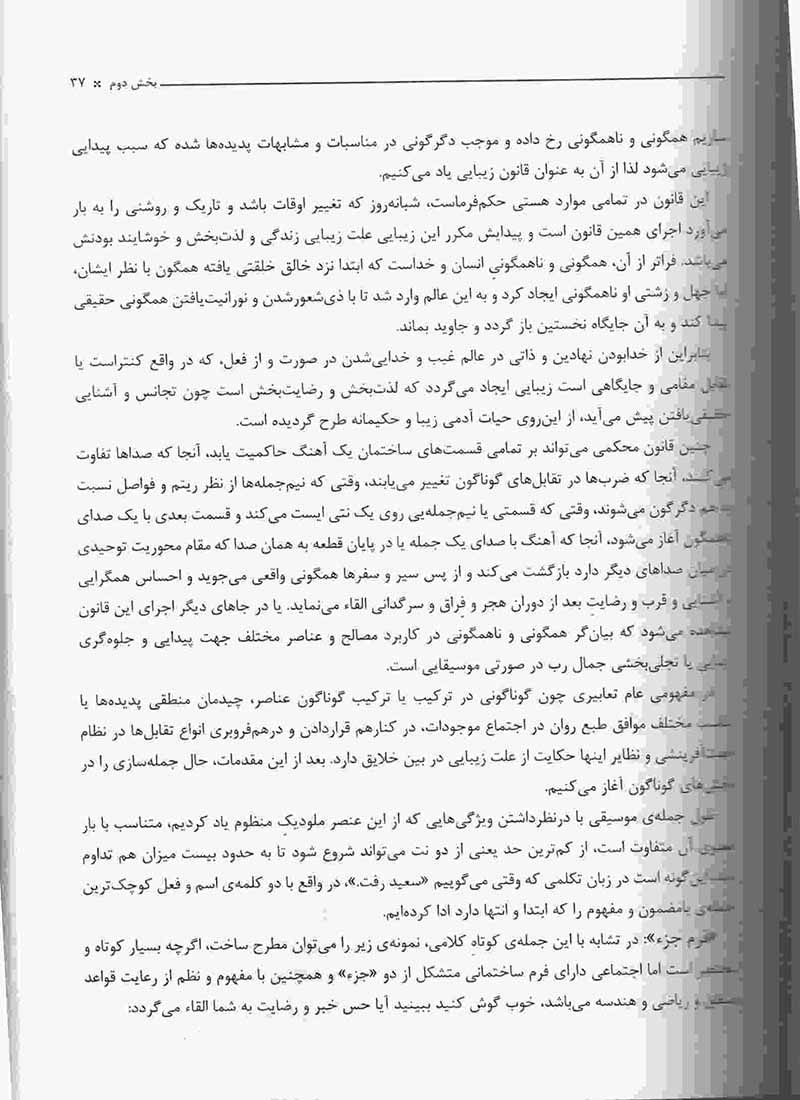 بخش دوم * ۳۷
سازیم همگونی و ناهمگونی رخ داده و موجب دگرگونی در مناسبات و مشابهات پدیده‌ها شده که سبب پیدایی
زیبایی می‌شود لذا از آن به عنوان قانون زیبایی یاد می‌کنیم.
این قانون در تمامی موارد هستی حکم‌فرماست، شبانه‌روز که تغییر اوقات باشد و تاریک و روشنی را به بار
می‌آورد اجرای همین قانون است و پیدایش مکرر این زیبایی علت زیبایی زندگی و لذت‌بخش و خوشایند بودنش
می‌باشد. فراتر از آن، همگونی و ناهمگونیِ انسان و خداست که ابتدا نزد خالق خلقتی یافته همگون با نظر ایشان،
اما جهل و زشتی او ناهمگونی ایجاد کرد و به این عالم وارد شد تا با ذی‌شعورشدن و نورانیت‌یافتن همگونی حقیقی
پیدا کند و به آن جایگاه نخستین باز گردد و جاوید بماند.
بنابراین از خدابودن نهادین و ذاتی در عالم غیب و خدایی‌شدن در صورت و از فعل، که در واقع کنتراست یا
تقابل مقامی و جایگاهی است زیبایی ایجاد می‌گردد که لذت‌بخش و رضایت‌بخش است چون تجانس و آشنایی
حقیقی‌یافتن پیش می‌آید، از این‌روی حیات آدمی زیبا و حکیمانه طرح گردیده است.
چنین قانون محکمی می‌تواند بر تمامی قسمت‌های ساختمان یک آهنگ حاکمیت یابد، آنجا که صداها تفاوت
می‌کنند، آنجا که ضرب‌ها در تقابل‌های گوناگون تغییر می‌یابند، وقتی که نیم‌جمله‌ها از نظر ریتم و فواصل نسبت
به‌هم دگرگون می‌شوند، وقتی که قسمتی یا نیم‌جمله‌یی روی یک نتی ایست می‌کند و قسمت بعدی با یک صدای
آغاز می‌شود، آنجا که آهنگ با صدای یک جمله یا در پایان قطعه به همان صدا که مقام محوریت توحیدی
در میان صداهای دیگر دارد بازگشت می‌کند و از پس سیر و سفرها همگونی واقعی می‌جوید و احساس همگرایی
و آشنایی و قرب و رضایتِ بعد از دوران هجر و فِراق و سرگدانی القاء می‌نماید. یا در جاهای دیگر اجرای این قانون
مشاهده می‌شود که بیان‌گر همگونی و ناهمگونی در کاربرد مصالح و عناصر مختلف جهت پیدایی و جلوه‌گری
زیبایی یا تجلی‌بخشی جمال رب در صورتی موسیقایی است.
در مفهومی عام تعابیری چون گوناگونی در ترکیب یا ترکیب گوناگون عناصر، چیدمان منطقی پدیده‌ها یا
مختلف موافق طبع روان در اجتماع موجودات، در کنارهم قراردادن و درهم‌فروبری انواع تقابل‌ها در نظام
و نظایر اینها حکایت از علت زیبایی در بین خلایق دارد. بعد از این مقدمات، حال جمله‌سازی را در
بخش‌های گوناگون آغاز می‌کنیم.
طول جمله‌ی موسیقی با درنظرداشتن ویژگی‌هایی که از این عنصر ملودیکِ منظوم یاد کردیم، متناسب با بار
معنوی آن متفاوت است، از کم‌ترین حد یعنی از دو نت می‌تواند شروع شود تا به حدود بیست میزان هم تداوم
این‌گونه است در زبان تکلمی که وقتی می‌گوییم «سعید رفت.»، در واقع با دو کلمه‌ی اسم و فعل کوچک‌ترین
جمله‌ی بامضمون و مفهوم را که ابتدا و انتها دارد ادا کرده‌ایم.
«فرم جزء»: در تشابه با این جمله‌ی کوتاهِ کلامی، نمونه‌ی زیر را می‌توان مطرح ساخت، اگرچه بسیار کوتاه و
مختصر است اما اجتماعی دارای فرم ساختمانی متشکل از دو «جزء» و همچنین با مفهوم و نظم از رعایت قواعد
و ریاضی و هندسه می‌باشد، خوب گوش کنید ببینید آیا حس خبر و رضایت به شما القاء می‌گردد: